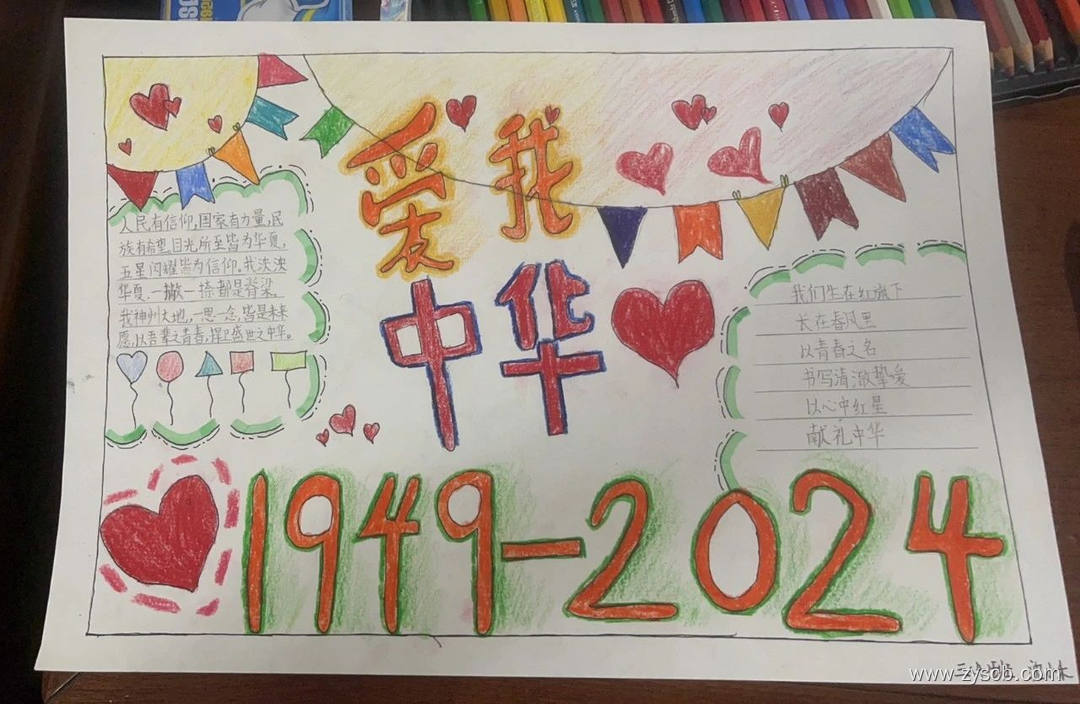 爱我
中华
人民有信仰,国家有力量,民
族有希望,目光所至皆为华夏,
五星闪耀皆为信仰。我泱泱
华夏,一撇一捺都是脊梁。
我神州大地,一思一念,皆是未来
愿,以吾辈之青春,捍卫盛世之中华。
我们生在红旗下
长在春风里
以青春之名
书写清澈挚爱
以心中红星
献礼中华
1949-2024
www.zyscb.com